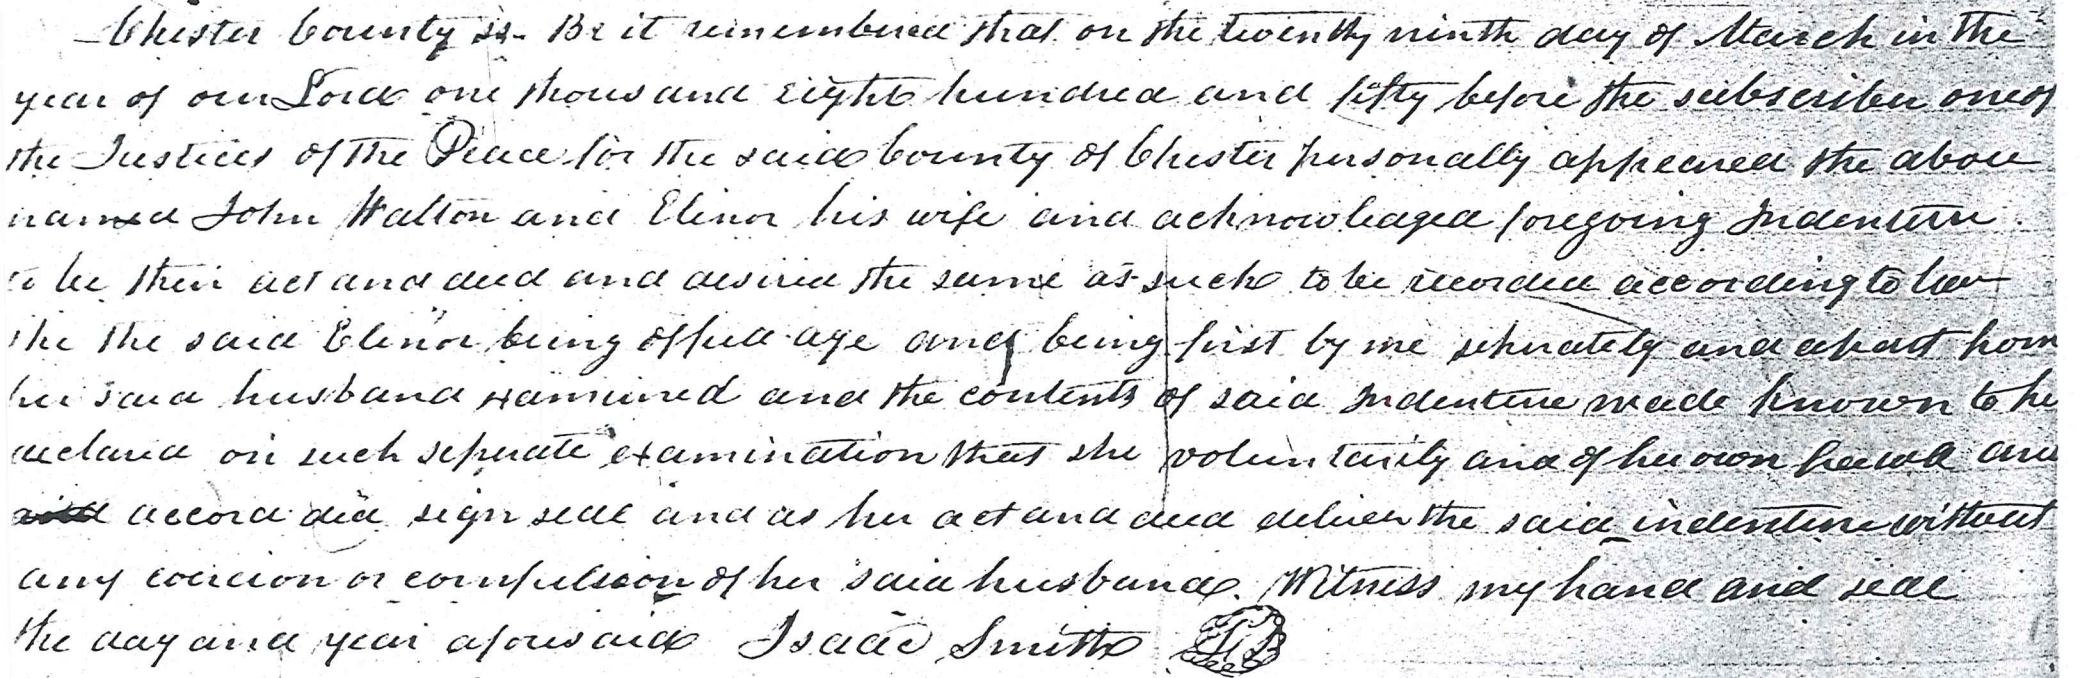 Chester County ss. Be it remembered that on the twenty ninth day of March in the
year of our Lord one thousand eight hundred and fifty before the subscriber one of
the Justices of the Peace for the said County of Chester personally appeared the above
named John Walton and Elinor his wife and acknowledged foregoing Indenture
to be their act and deed and desired the same as such to be recorded according to law
she the said Elinor being of full age and being first by me seperately and apart from
her said husband examined and the contents of said Indenture made known to he
declared on such seperate examination that she voluntarily and of her own freewill and
accord did sign seal and as her act and deed deliver the said indenture without
any coercion or compulsion of her said husband. Witness my hand and seal
the day and year aforesaid Isaac Smith